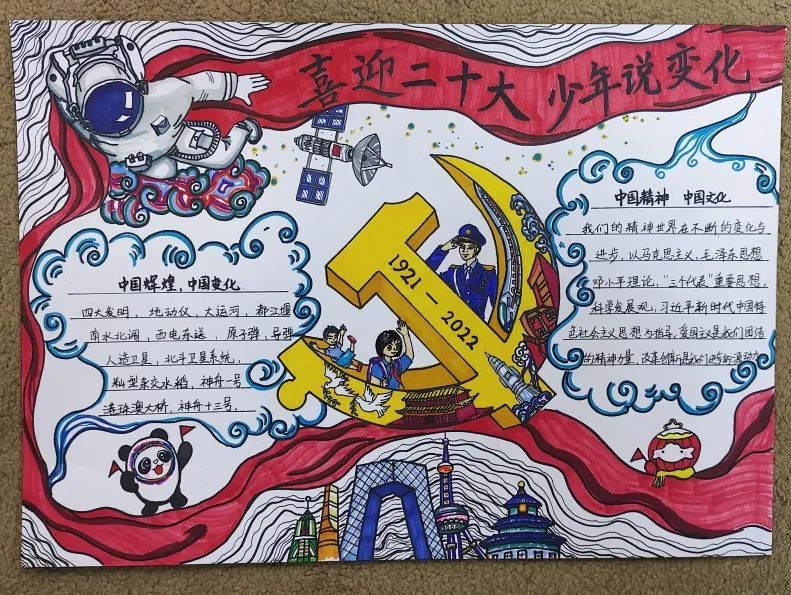 喜迎二十大 少年说变化
中国辉煌,中国变化
四大发明、地动仪、大运河、都江堰
南水北调、西电东送、原子弹、导弹
人造卫星、北斗卫星系统、
籼型杂交水稻、神舟一号
港珠澳大桥、神舟十三号、
1921—2022
中国精神 中国文化
我们的精神世界在不断的变化与
进步,以马克思主义、毛泽东思想
邓小平理论,“三个代表”重要思想,
科学发展观,习近平新时代中国特
色社会主义思想为指导,爱国主义是我们团结
的精神力量,改革创新是我们